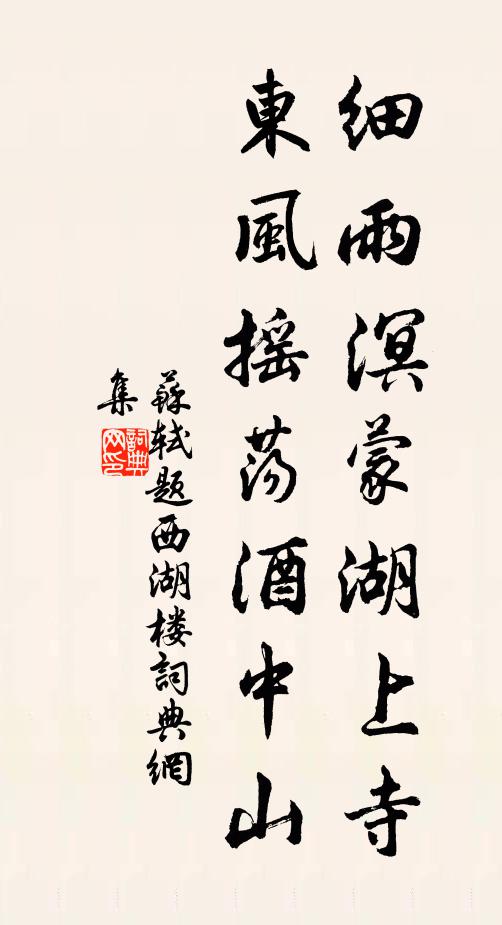 細雨溟蒙湖上寺
東風摇蕩酒中山
蘇軾题西湖楼詞典網
集
詞典网印